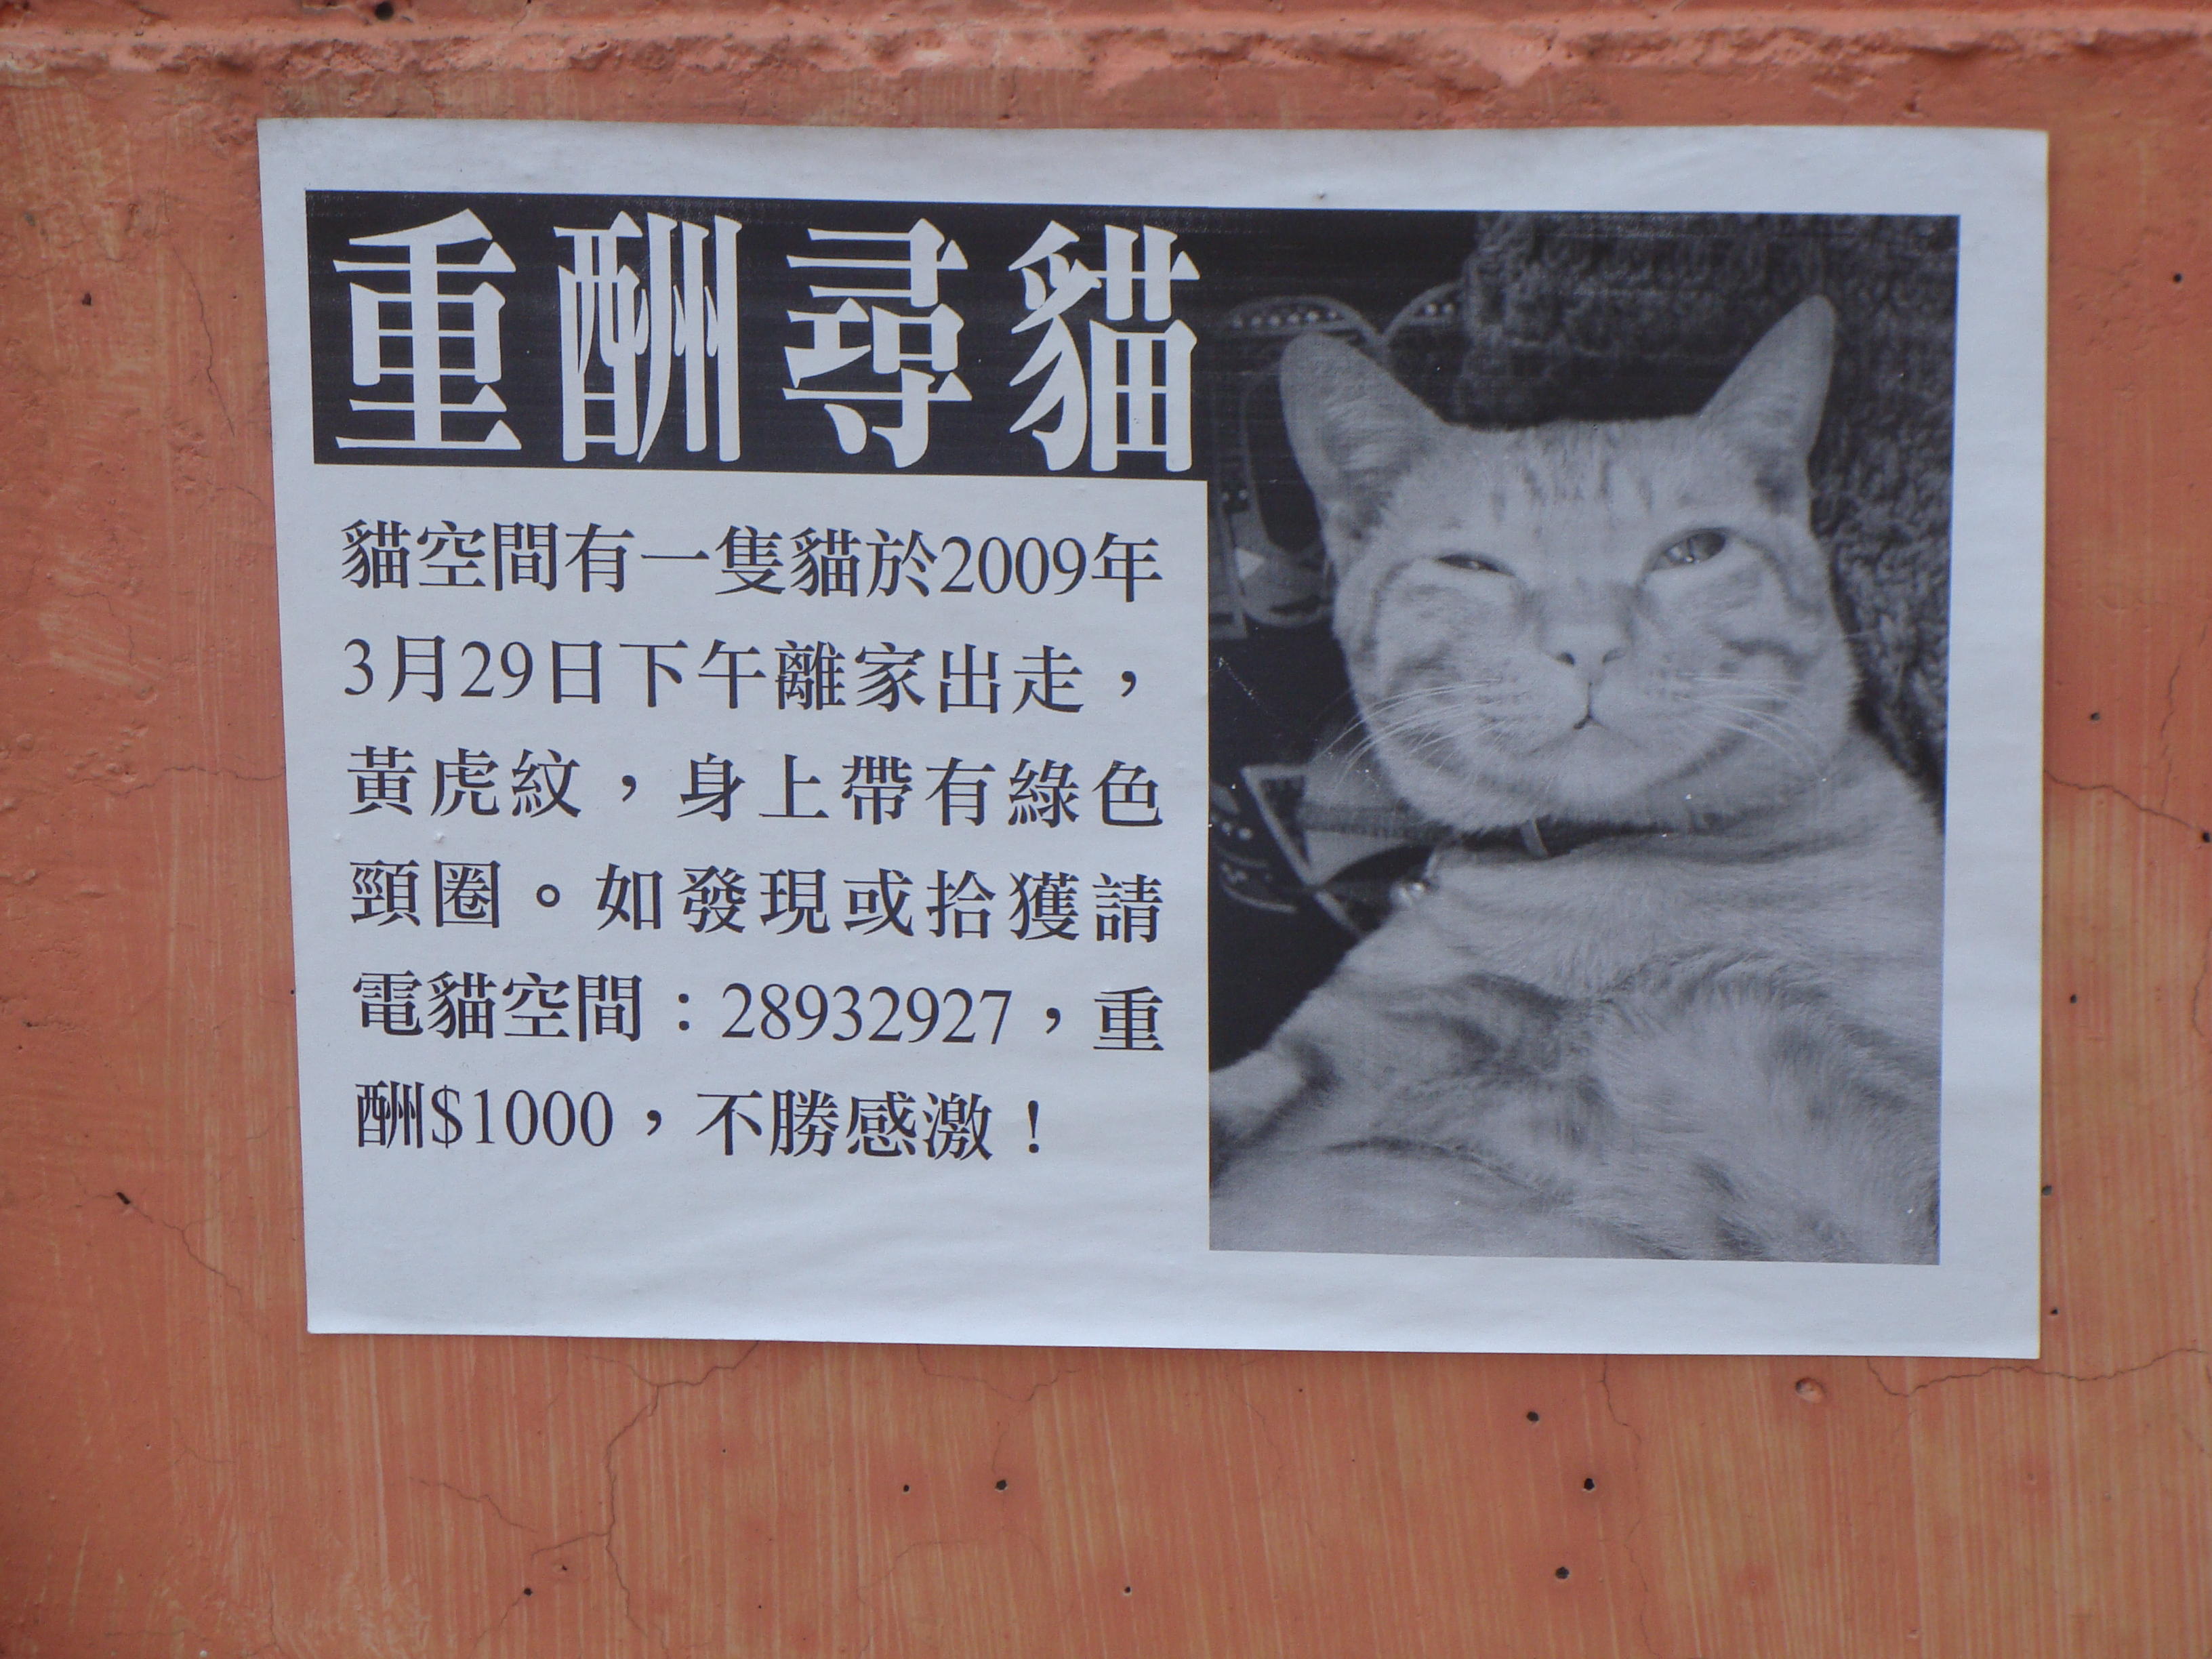 重酬尋貓
貓空間有一隻貓於2009年
3月29日下午離家出走，
黃虎紋，身上帶有綠色
頸圈。如發現或拾獲請
電貓空間：28932927，重
酬$1000，不勝感激！